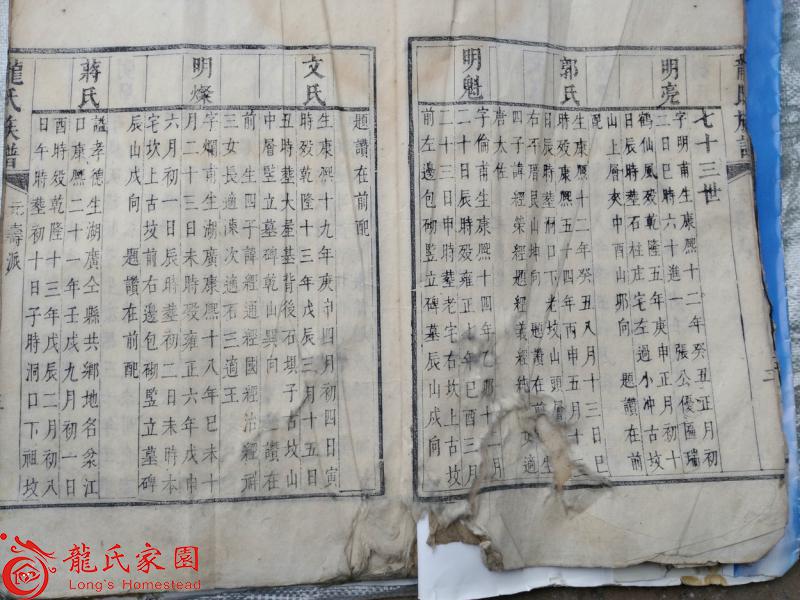 龍氏族譜
七十三世
明亮
字明甫生康熙十二年癸丑正月初
二日巳時六十進一 張公優匾瑞
鶴仙風殁乾隆五年庚申正月初十
日辰時塟石柱庄宅左過小冲古坟
山上層夾中酉山夘向 題讚在前
配
郭氏
生康熙十二年癸丑八月十三日巳
時殁康熙五十四年丙申五月十三
日辰時塟材口下老坟山頭層
右不厝艮山坤向 題讚在前 生
四子諱經榮經題經義經純 適
唐太佐
明魁
字倫甫生康熙十四年乙夘十一月
二十日辰時殁雍正七年己酉三月
二十三日申時塟老宅右坎上古坟
前左邊包砌監立碑墓辰山戍向
題讚在前配
文氏
生康熙十九年庚申四月初四日寅
時殁乾隆十三年戊辰三月十五日
丑時塟大屋基背後石埧子古坟山
中層堅立墓碑乾山巽向 讚在
前 生四子諱經通經國經治經
三女長適陳次適石三適王
明燦
字爛甫生湖廣康熙十八年巳未十
月二十三日未時殁雍正六年戊申
六月初一日辰時塟初二日未時本
宅坎上古坟前右邊包砌監立墓碑
辰山戍向 題讚在前配
蔣氏
諡孝德生湖廣仝縣共鄉地名粂江
口康熙二十一年壬戍九月初一日
酉時殁乾隆十三年戊辰二月初八
日午時塟初十日子時洞口下祖坟
龍氏族譜
元壽派
龍氏家園
Long's Homestead